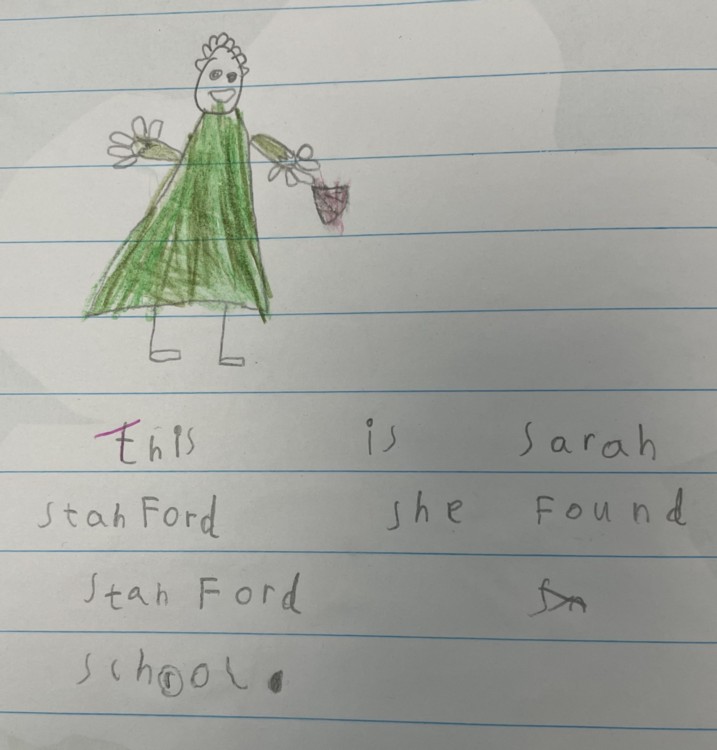 this is sarah
stanFord she Found
stanFord
school.